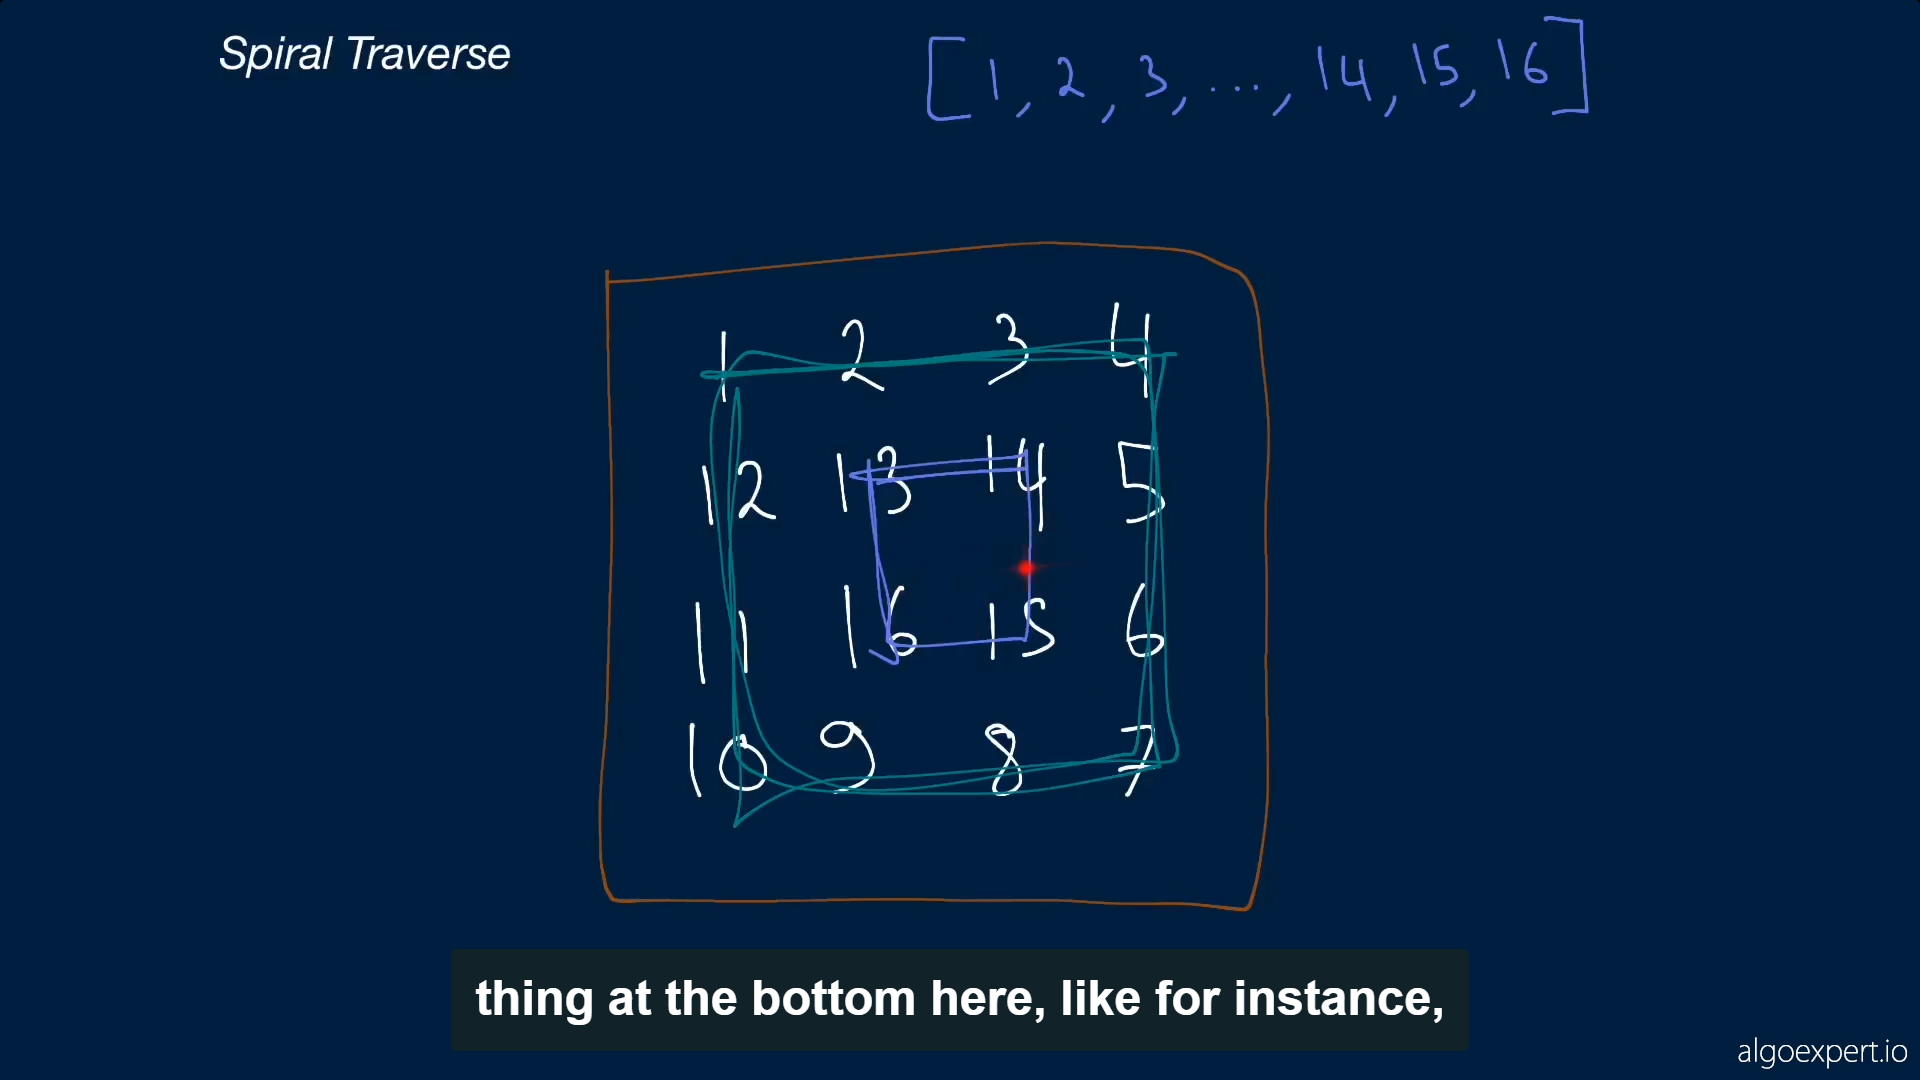 Spiral Traverse
[1, 2, 3, ..., 14, 15, 16]
1 2 3 4
12 13 14 5
11 16 15 6
10 9 8 7
thing at the bottom here, like for instance,
algoexpert.io